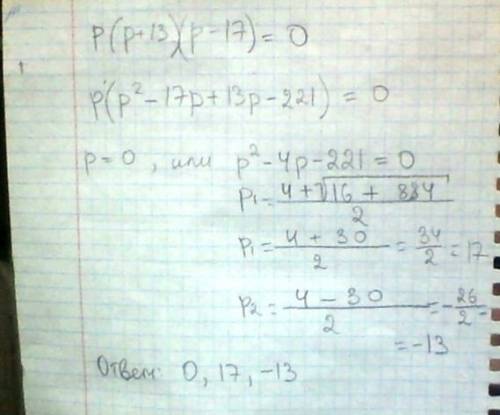 p(p+13)(p-17)=0
p(p²-17p+13p-221)=0
p=0, или p²-4p-221=0
p₁=(4+√(16+884))/2
p₁=(4+30)/2=34/2=17
p₂=(4-30)/2=-26/2=
=-13
Ответ: 0, 17, -13